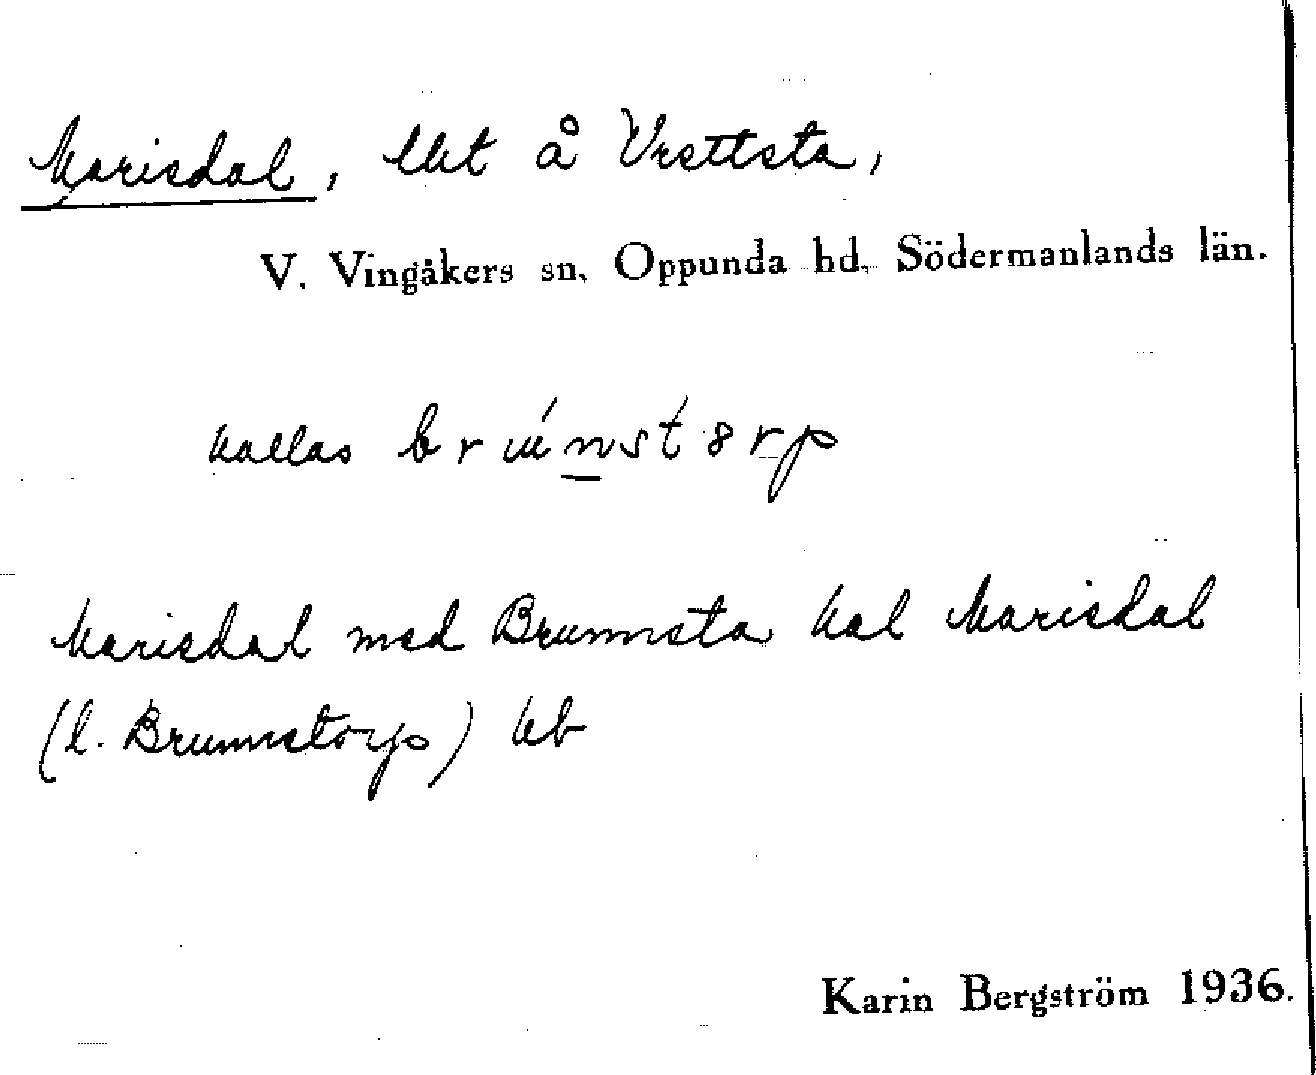 Marisdal, lht å Vrettsta,
V. Vingåkers sn, Oppunda hd, Södermanlands län.
kallas brúnstorp
Marisdal med Brunnsta kal Marisdal
(l. Brunnstorp) kb
Karin Bergström 1936.